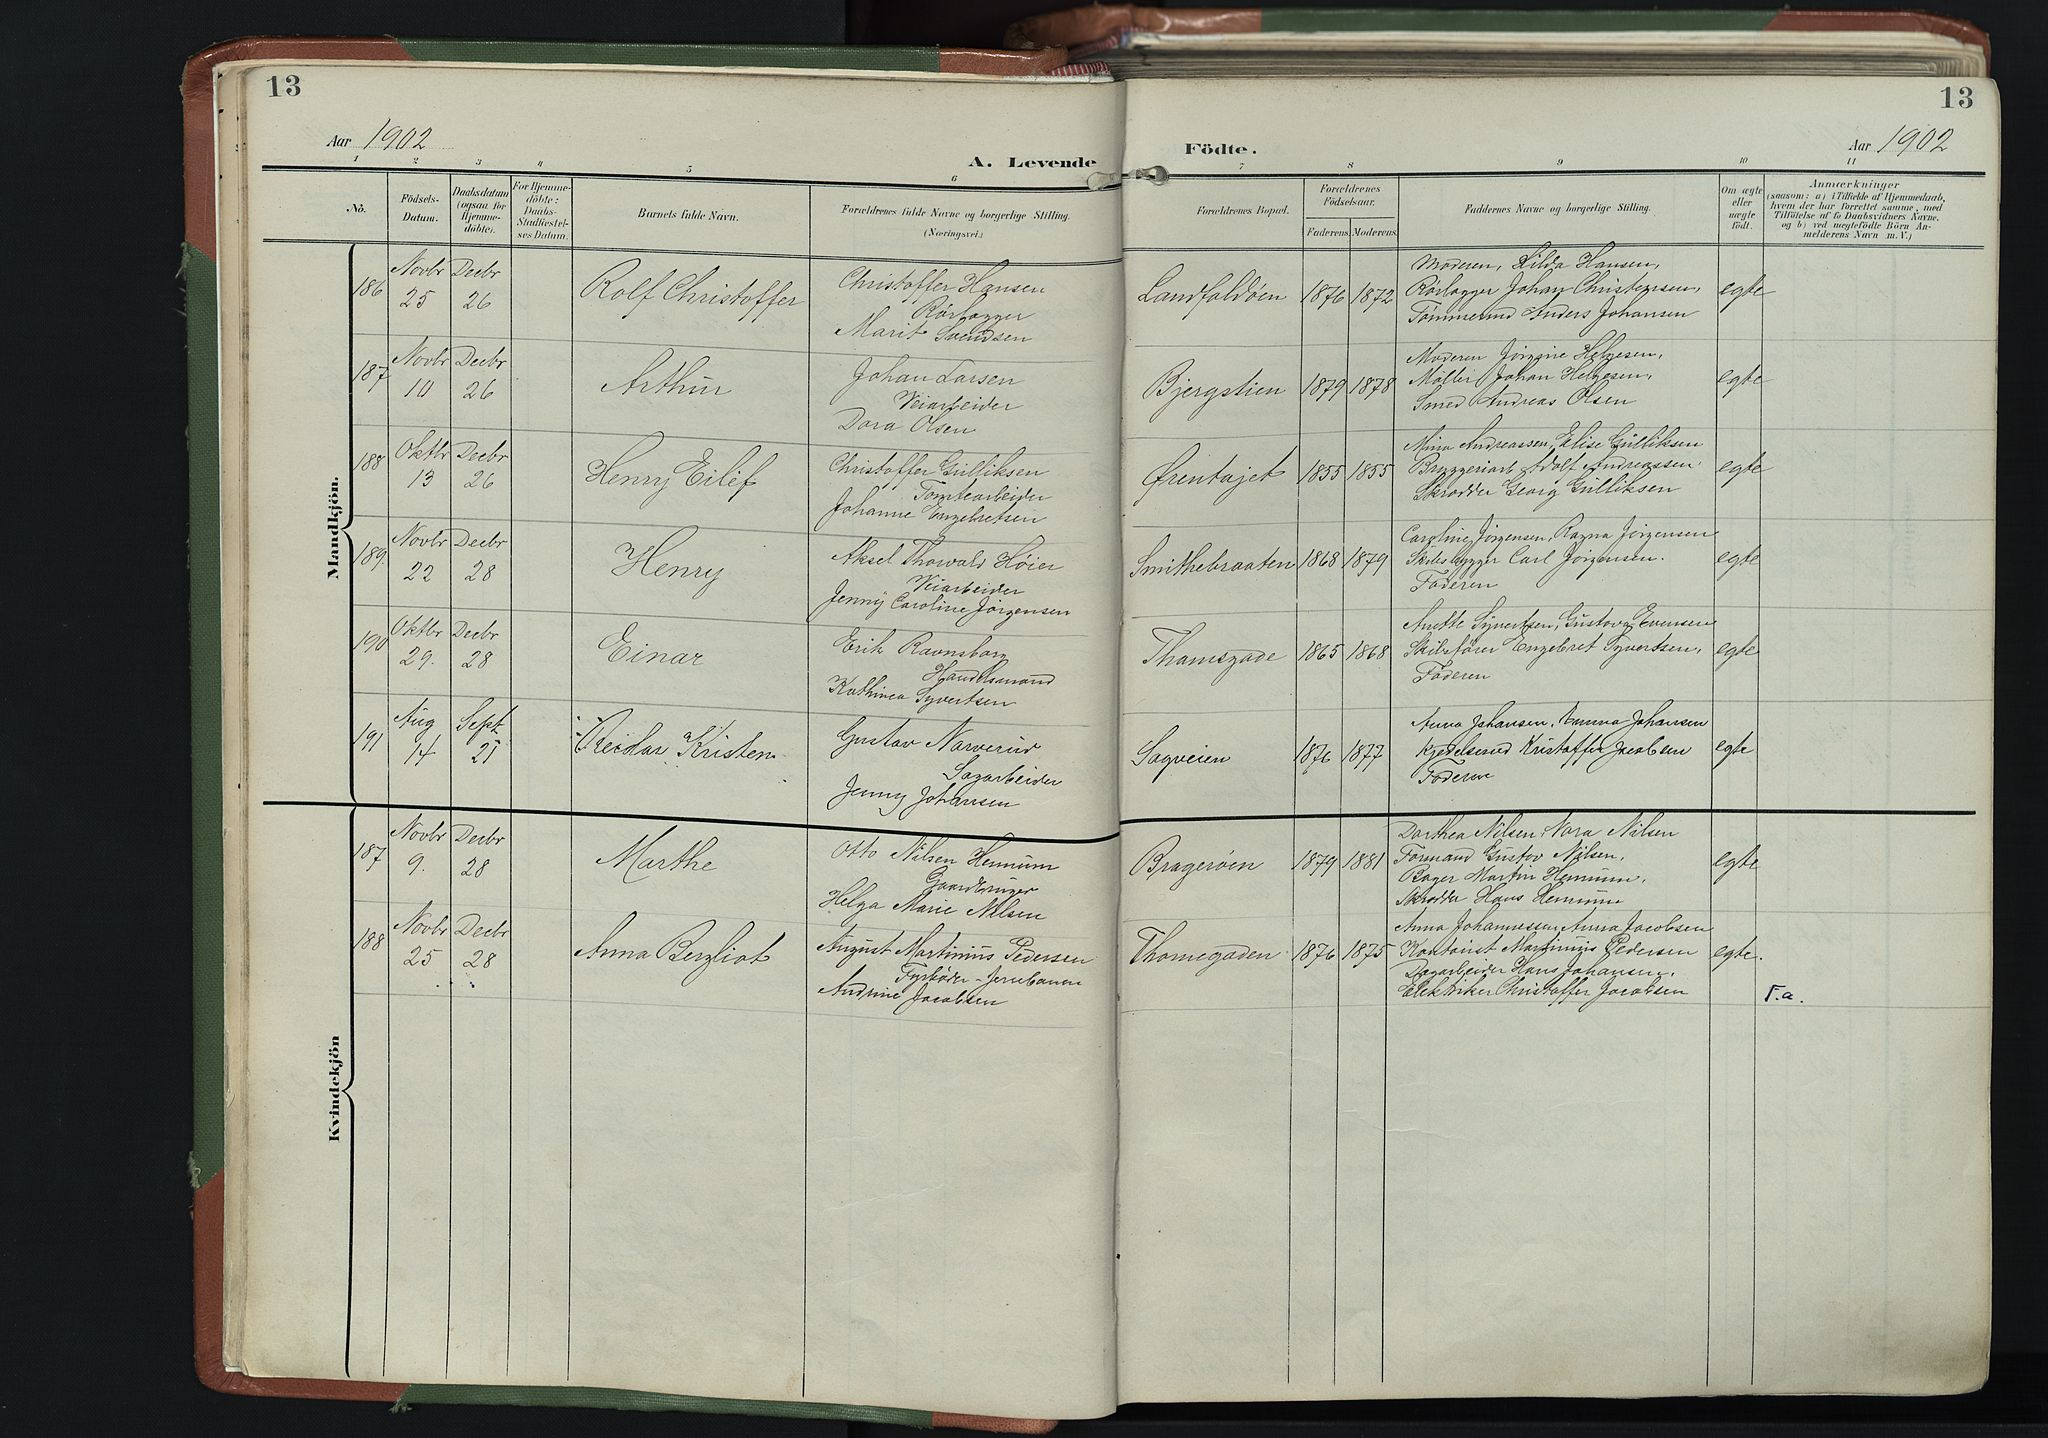 13
13
Aar 1902
A. Levende
Födte.
Aar 1902
1 2 3 4 5 6 7 8 9 10 11
No.
Födsels-
Datum.
Daabsdatum
(ogsaa for
Hjemme-
döbte).
For Hjemme-
döbte:
Daabs-
Stadfæstel-
ses Datum.
Barnets fulde Navn.
Forældrenes fulde Navne og borgerlige Stilling.
(Næringsvei.)
Forældrenes Bopæl.
Forældrenes
Födselsaar.
Faderens. Moderens.
Faddernes Navne og borgerlige Stilling.
Om ægte
eller
uægte
födt.
Anmærkninger
(saasom: a) i Tilfælde af Hjemmedaab,
hvem der har forrettet samme, med
Tilföielse af to Daabsvidners Navne,
og b) ved uægtefödte Börn An-
melderens Navn m. V.)
Mandkjön.
186 Novbr 25 Decbr 26 Rolf Christoffer
Christoffer Hansen
Rörlægger
Marit Svendsen
Landfaldöen 1876 1872
Moderen, Hilda Hansen,
Rörlægger Johan Christensen,
Tømmermd Anders Johansen
egte
187 Novbr 10 Decbr 26 Arthur
Johan Larsen
Veiarbeider
Dora Olsen
Bjergstien 1879 1878
Moderen Jørgine Helgesen,
Møller Johan Helgesen,
Smed Andreas Olsen
egte
188 Oktbr 13 Decbr 26 Henry Eilef
Christoffer Gulliksen
Tomtearbeider
Johanne Engebretsen
Ørentajet 1855 1855
Mina Andreassen, Elise Gulliksen
Bryggeriarb Adolf Andreassen.
Skrædder Georg Gulliksen
egte
189. Novbr 22 Decbr 28 Henry
Aksel Thorvald Høier
Veiarbeider
Jenny Caroline Jørgensen
Smithebraaten 1868 1879
Caroline Jørgensen, Ragna Jørgensen
Skibsbygger Carl Jørgensen.
Faderen
egte
190 Oktbr 29. Decbr 28 Einar
Erik Ravnsborg
Handelsmand
Kathinca Syvertsen
Thomsgade 1865 1868
Anette Syvertsen, Gustava Evensen
Skibsfører Engebret Syvertsen,
Faderen
egte
191 Aug 14 Sept 21 Reidar Kristen
Gustav Narverud
Sagarbeider
Jenny Johansen
Sagveien 1876 1877
Anna Johansen, Emma Johansen
Kjedelsmd Kristoffer Jacobsen
Faderen
egte
Kvindekjön
187 Novbr 9. Decbr 28 Marthe
Otto Nilsen Hemum
Gaardbruger
Helga Marie Nilsen
Bragerøen 1879 1881
Dorthea Nilsen, Nora Nilsen
Formand Gustav Nilsen,
Bager Martin Hemum,
Skrædder Hans Hemum
egte
188 Novbr 25 Decbr 28 Anna Bergliot
August Martinius Pedersen
Fyrbøder - Jernbanen
Andrine Jacobsen
Thomegaden 1876 1875
Anna Johannessen Anna Jacobsen
Kontorist Martinius Pedersen
Dagarbeider Hans Johansen,
Elektriker Christoffer Jacobsen
egte.
F.a.